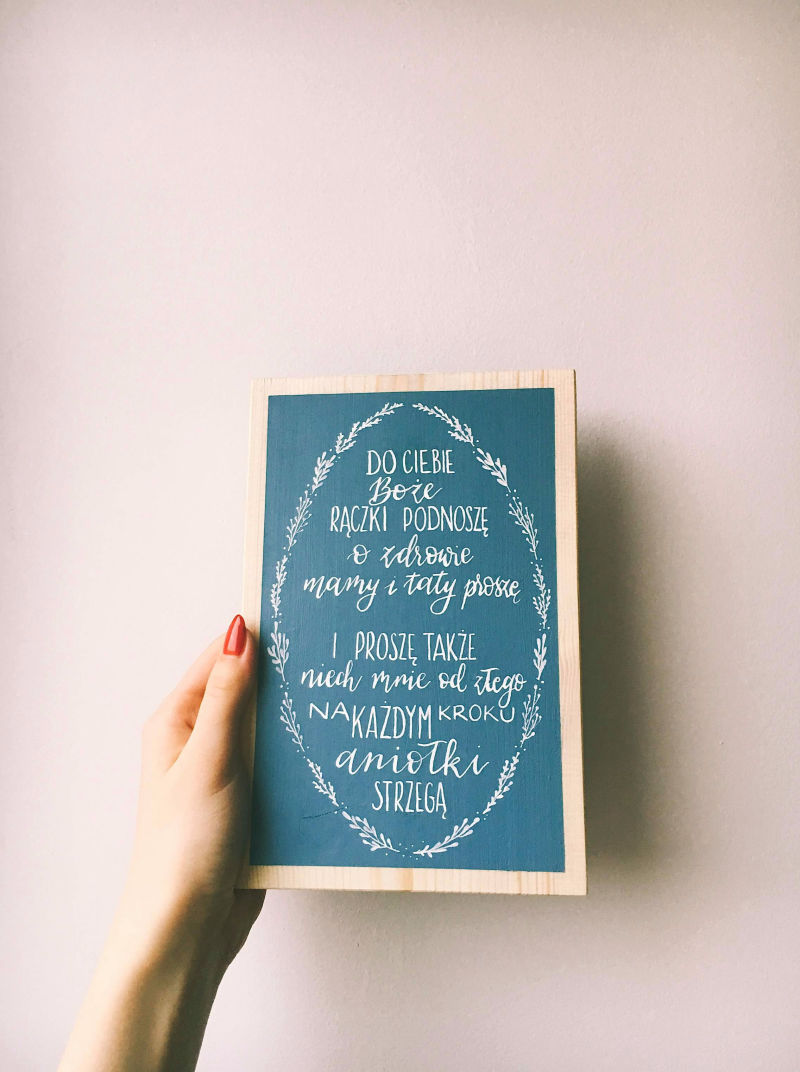 DO CIEBIE
Boże
RĄCZKI PODNOSZĘ
o zdrowie
mamy i taty proszę
I PROSZĘ TAKŻE
niech mnie od złego
NA KAŻDYM KROKU
aniołki
STRZEGĄ